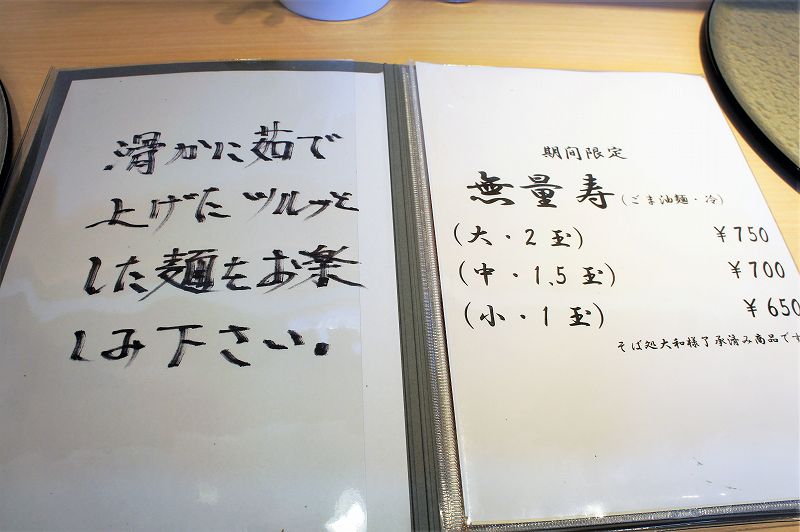 滑かに茹で
上げたツルッと
した麺をお楽
しみ下さい。
期間限定
無量寿(ごま油麺・冷)
(大・2玉) ¥750
(中・1.5玉) ¥700
(小・1玉) ¥650
そば処大和様了承済み商品です